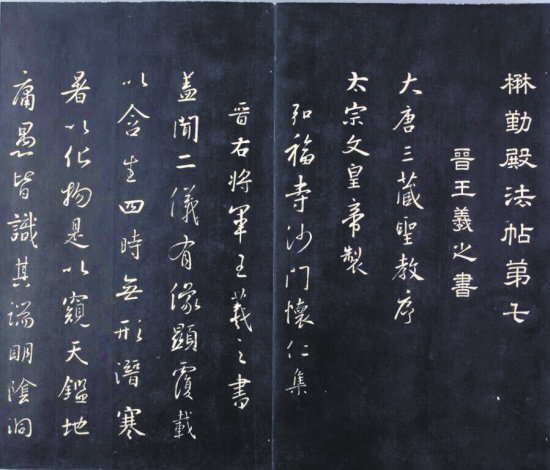 懋勤殿法帖第七
晉王羲之書
大唐三藏聖教序
太宗文皇帝製
弘福寺沙門懷仁集
晉右將軍王羲之書
蓋聞二儀有像顯覆載
以含生四時無形潛寒
暑以化物是以窺天鑑地
庸愚皆識其端明陰洞